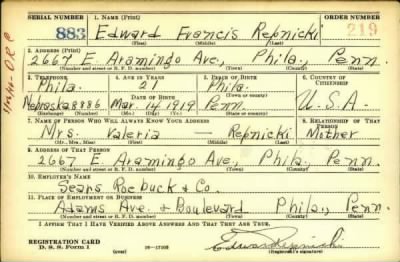 SERIAL NUMBER 1. NAME (Print) ORDER NUMBER
883 Edward Francis Repnicki 219
(First) (Middle) (Last)
2. ADDRESS (Print)
2667 E. Aramingo Ave., Phila., Penn.
(Number and street or R. F. D. number) (Town) (County) (State)
3. TELEPHONE 4. AGE IN YEARS 5. PLACE OF BIRTH 6. COUNTRY OF CITIZENSHIP
Phila. 21 Phila.
DATE OF BIRTH (Town or county)
Nebraska 8886 Mar. 14 1919 Penn. U.S.A.
(Mo.) (Day) (Yr.) (State or country)
7. NAME OF PERSON WHO WILL ALWAYS KNOW YOUR ADDRESS 8. RELATIONSHIP OF THAT PERSON
Mrs. Valeria — Repnicki Mother
(Mr., Mrs., Miss) (First) (Middle) (Last)
9. ADDRESS OF THAT PERSON
2667 E. Aramingo Ave., Phila., Penn.
(Number and street or R. F. D. number) (Town) (County) (State)
10. EMPLOYER'S NAME
Sears Roebuck & Co.
11. PLACE OF EMPLOYMENT OR BUSINESS
Adams Ave. & Boulevard Phila., Penn.
(Number and street or R. F. D. number) (Town) (County) (State)
I AFFIRM THAT I HAVE VERIFIED ABOVE ANSWERS AND THAT THEY ARE TRUE.
REGISTRATION CARD
D. S. S. Form 1 (over) Edward Repnicki
(Registrant's signature)